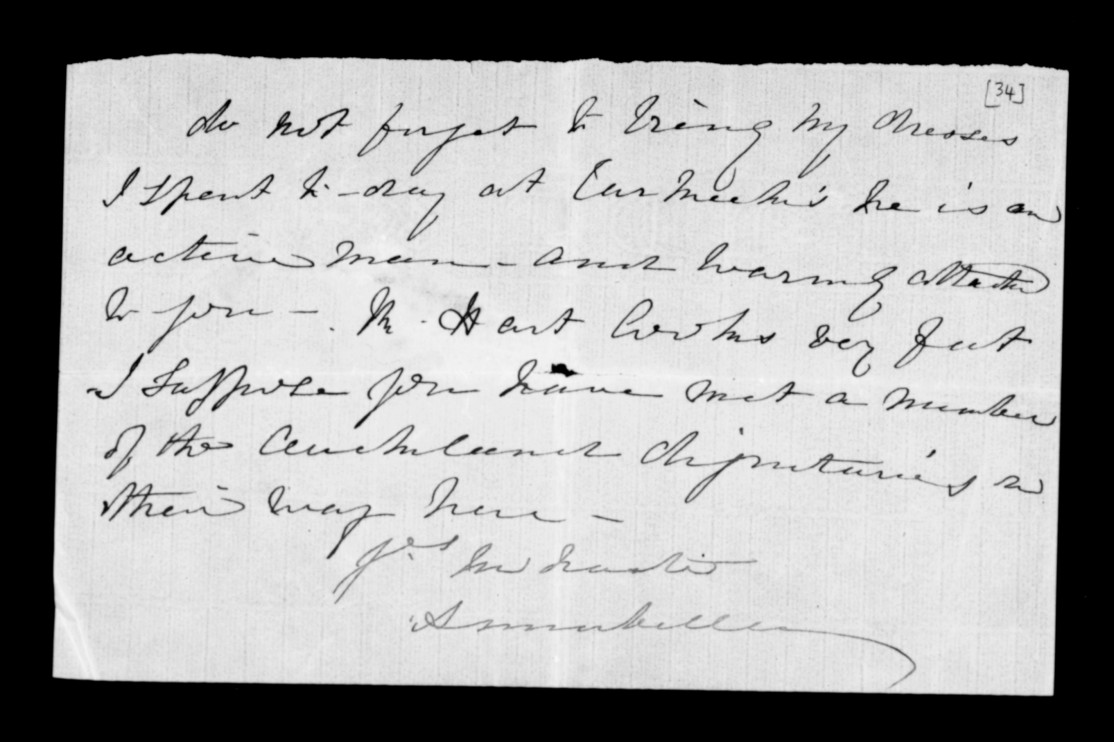 [34]
do not forget to bring my dresses
I spent to-day at Carmechi's he is an
active man - and warmly attached
to you - Mr. Hart looks very fat
I suppose you have met a number
of the Auckland dignitaries on
their way here -
Yrs in haste
Annabella